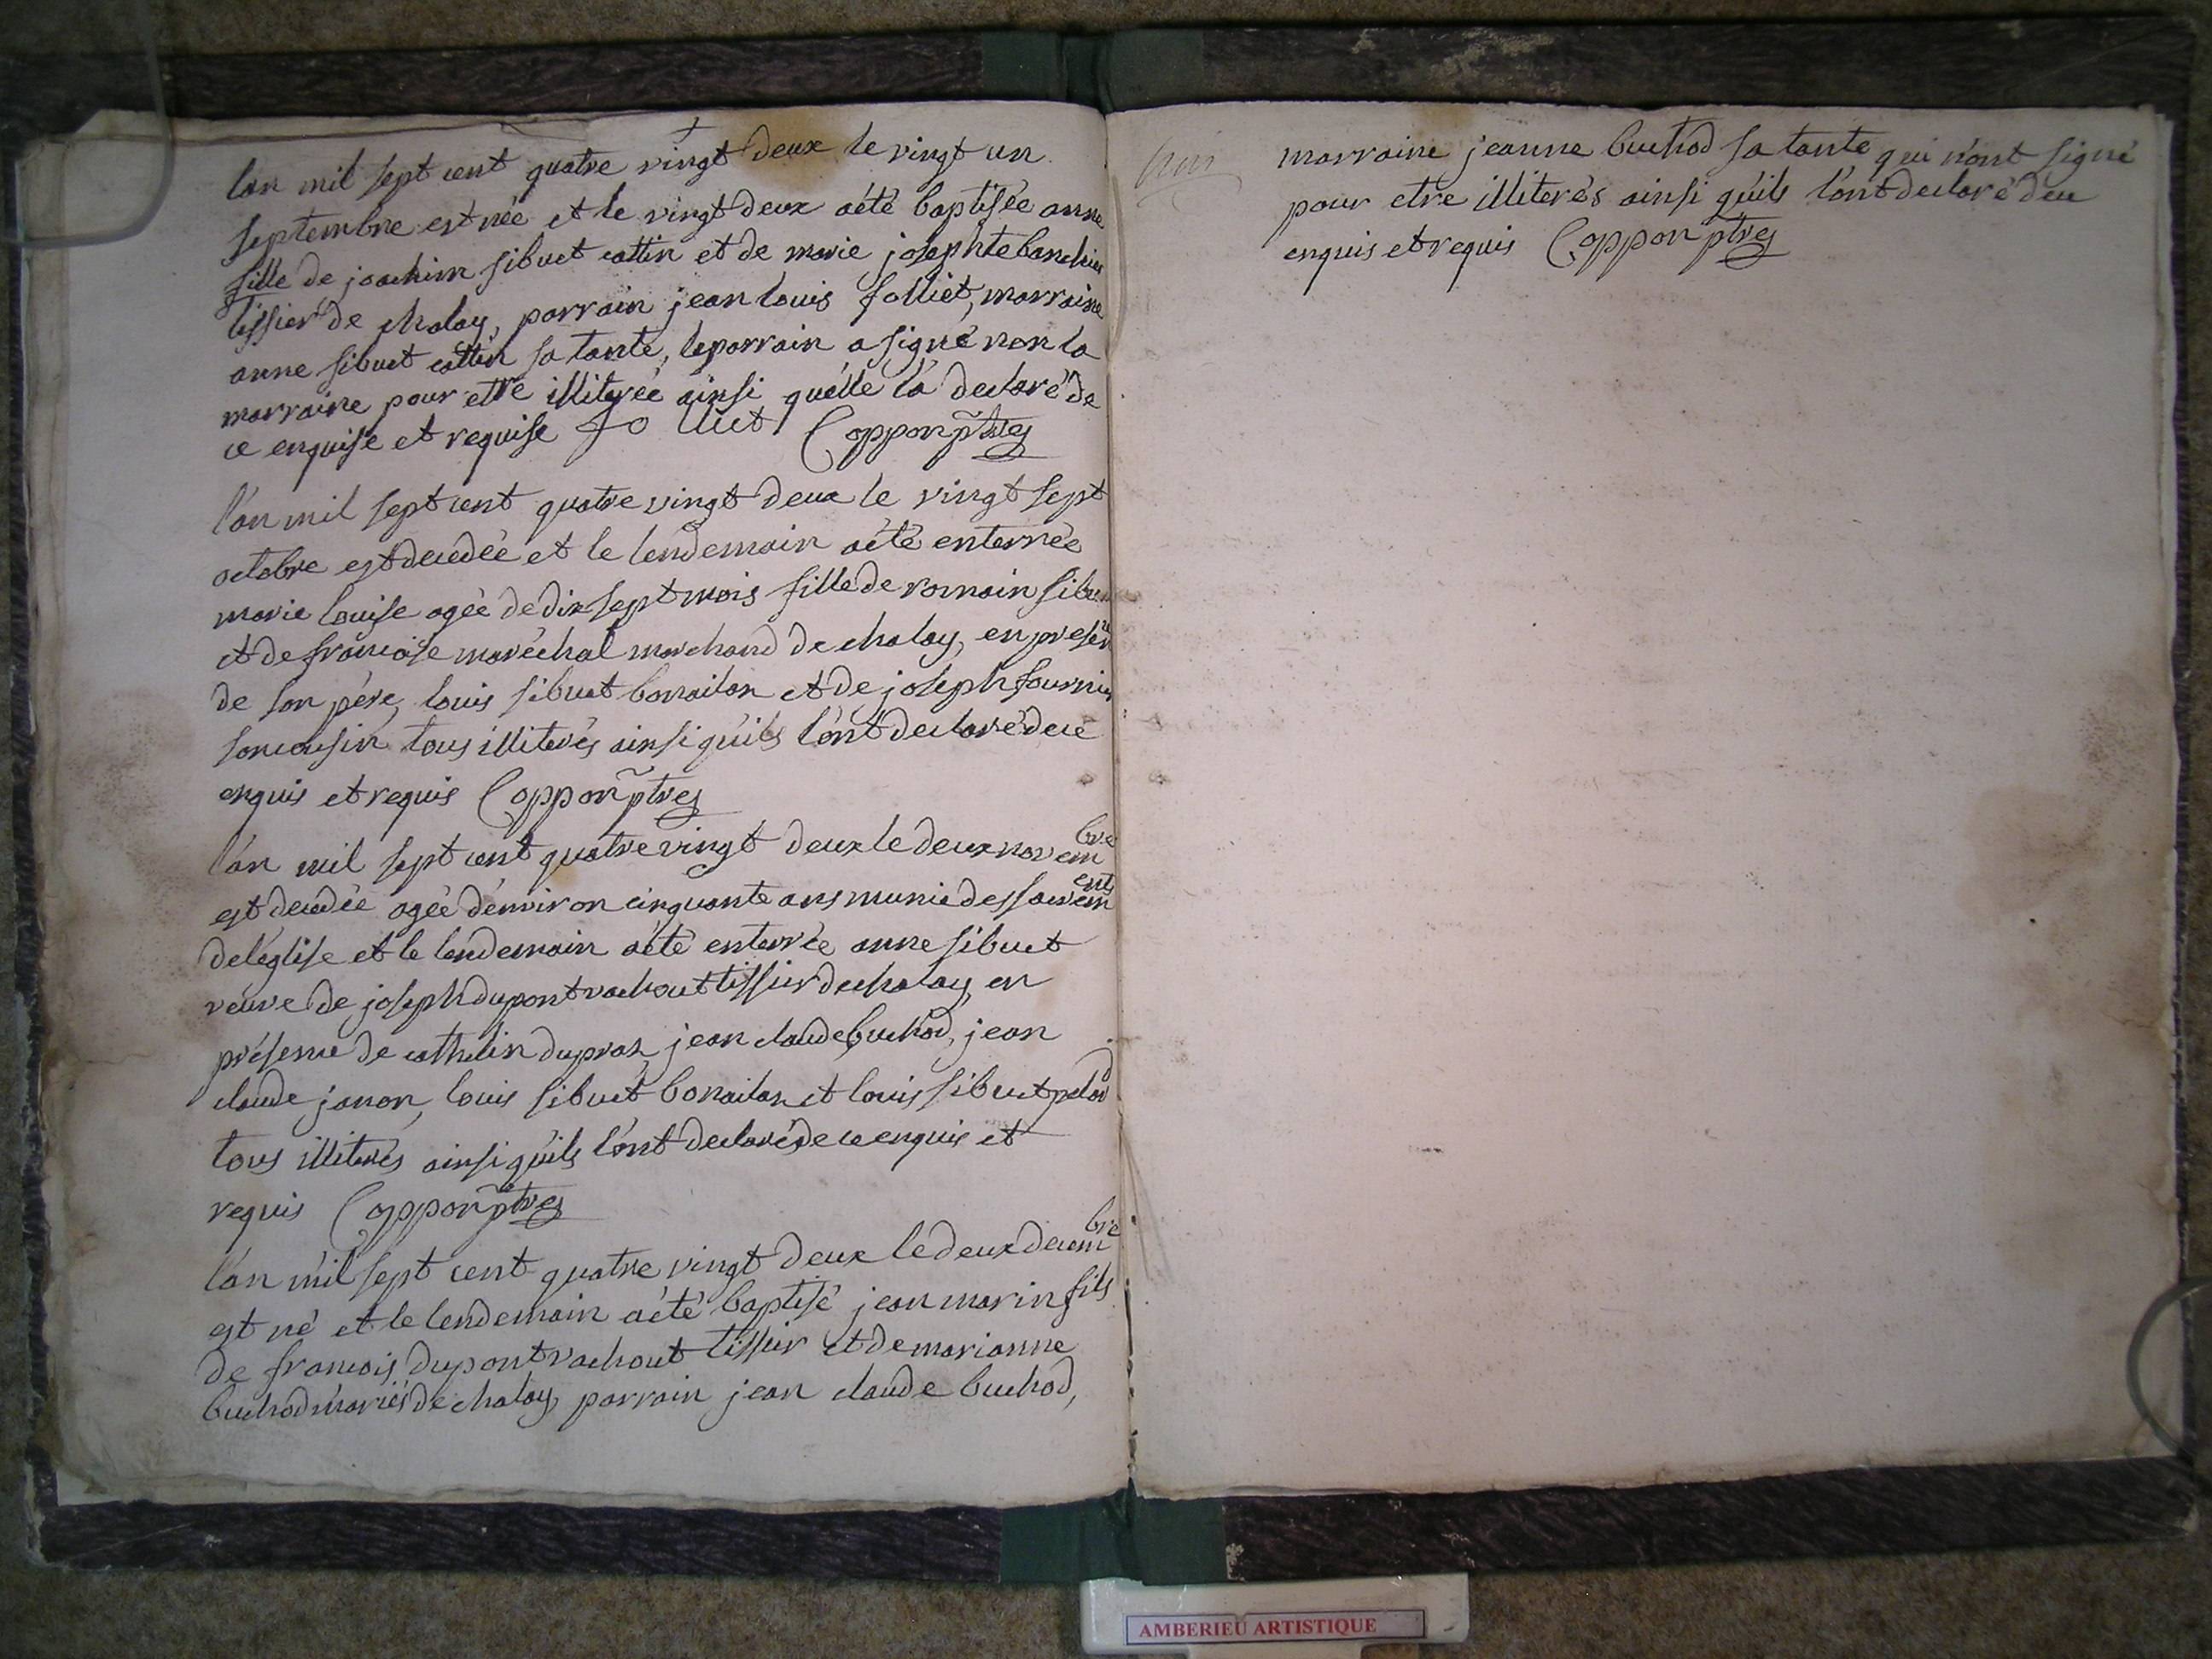 lan mil sept cent quatre vingt deux le vingt un
septembre est née et le vingt deux aété baptisée anne
fille de joachim sibuet cottin et de marie josephte
tissier de chaley, parrain jean louis folliet, marraine
anne sibuet cottin sa tante, le parrain a signé non la
marraine pour etre illiterée ainsi quélle l'a declaré de
ce enquise et requise folliet Cappon ptre
l'an mil sept cent quatre vingt deux le vingt sept
octobre est decédée et le lendemain aété enterrée
marie louise agée de dix sept mois fille de romain sibuet
et de francoise maréchal marchand de chaley, en présence
de son père, louis sibuet bonailon et de joseph fournier
son cousin tous illiterés ainsi quíls l'ont declaré de ce
enquis et requis Cappon ptre
l'an mil sept cent quatre vingt deux le deux novembre
est decédée agée d'environ cinquante ans munie des sacrements
de léglise et le lendemain aété enterrée anne sibuet
veuve de joseph dupont vachout tissier de chaley, en
présence de cathelin dupraz, jean claude buchod, jean
claude janon, louis sibuet bonailon et louis sibuet
tous illiterés ainsi quíls l'ont declaré de ce enquis et
requis Cappon ptre
l'an mil sept cent quatre vingt deux le deux decembre
est né et le lendemain aété baptisé jean marin fils
de francois dupont vachout tissier et de marianne
buchod mariés de chaley, parrain jean claude buchod,
marraine jeanne buchod sa tante qui n'ont signé
pour etre illiterés ainsi quíls l'ont declaré de ce
enquis et requis Cappon ptre
AMBERIEU ARTISTIQUE